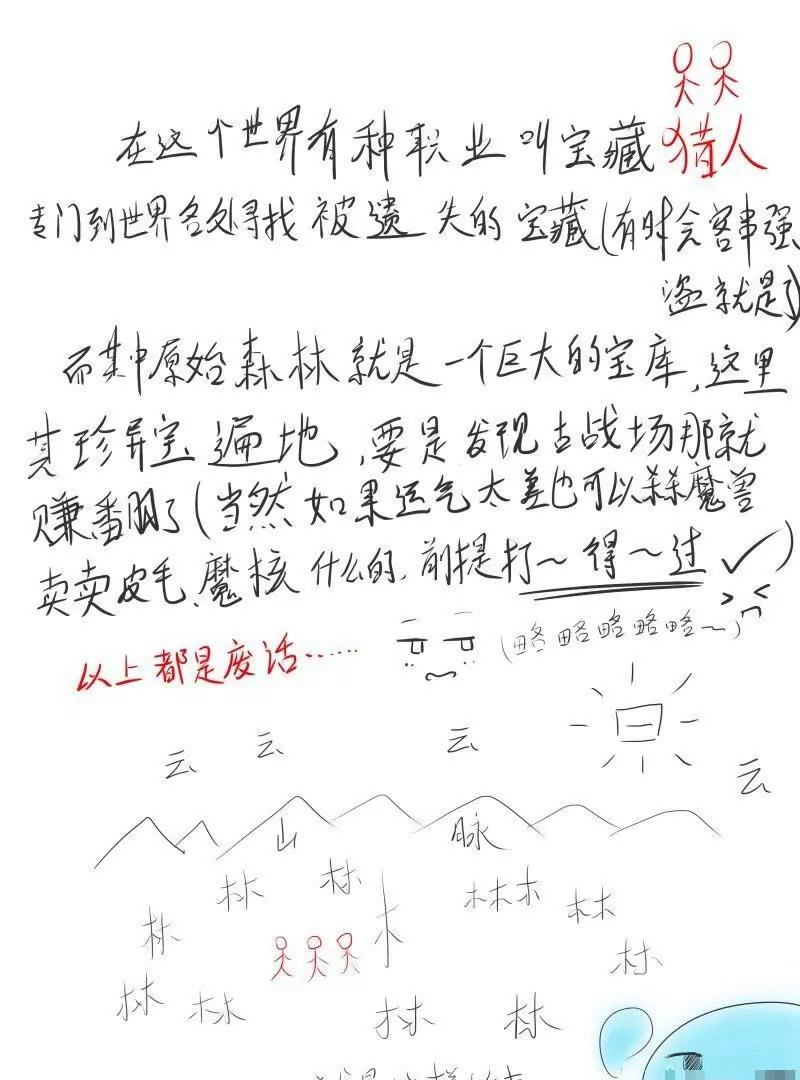 在这个世界有种职业叫宝藏猎人
专门到世界各处寻找被遗失的宝藏(有时会客串强
盗就是了)
而其中原始森林就是一个巨大的宝库,这里
其珍异宝遍地,要是发现古战场那就
赚番脚了(当然如果运气太差也可以杀杀魔兽
卖卖皮毛、魔核什么的.前提打~得~过✓)
(略略略略略~)
以上都是废话……
日
云 云 云
云
山 脉
林 林 林木 林
林 木
林
林 林 林 林